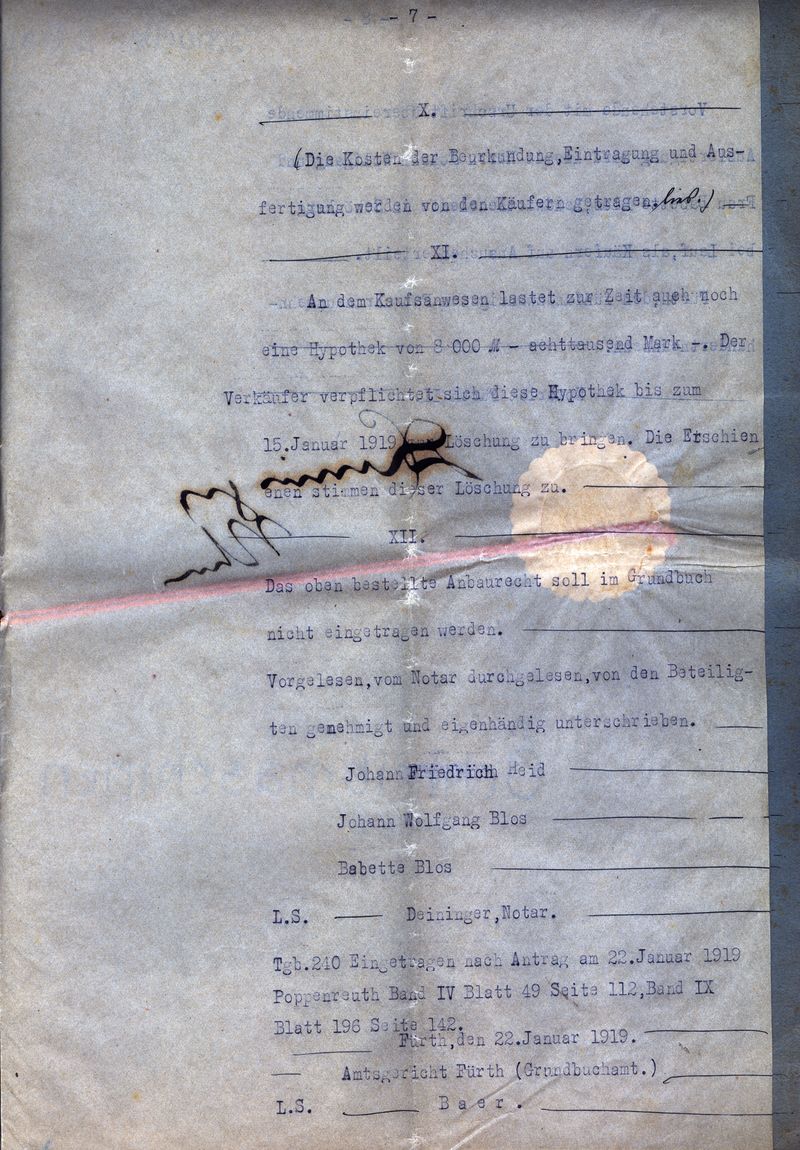 - 7 -
X.
(Die Kosten der Beurkundung,Eintragung und Aus-
fertigung werden von den Käufern getragen,
XI.
An dem Kaufsanwesen lastet zur Zeit auch noch
eine Hypothek von 8 000 M - achttausend Mark -. Der
Verkäufer verpflichtet sich diese Hypothek bis zum
15.Januar 1919 zur Löschung zu bringen. Die Erschien
enen stimmen dieser Löschung zu.
XII.
Das oben bestellte Anbaurecht soll im Grundbuch
nicht eingetragen werden.
Vorgelesen,vom Notar durchgelesen,von den Beteilig-
ten genehmigt und eigenhändig unterschrieben.
Johann Friedrich Heid
Johann Wolfgang Blos
Babette Blos
L.S. Deininger,Notar.
Tgb.240 Eingetragen nach Antrag am 22.Januar 1919
Poppenreuth Band IV Blatt 49 Seite 112,Band IX
Blatt 196 Seite 142.
Fürth,den 22.Januar 1919.
Amtsgericht Fürth (Grundbuchamt.)
L.S. Baer.